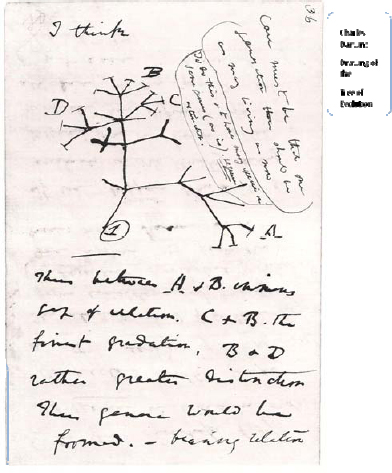 36
I think
Case must be that one
generation then should be
as many living as now
To do this & to have many species in
same genus (as is) requires
extinction.
B
D
C
A
1
Thus between A & B. immens
gap of relation. C & B. the
finest gradation, B & D
rather greater distinction
Thus genera would be
formed. — bearing relation
Charles
Darwin:
Drawing of
the
Tree of
Evolution